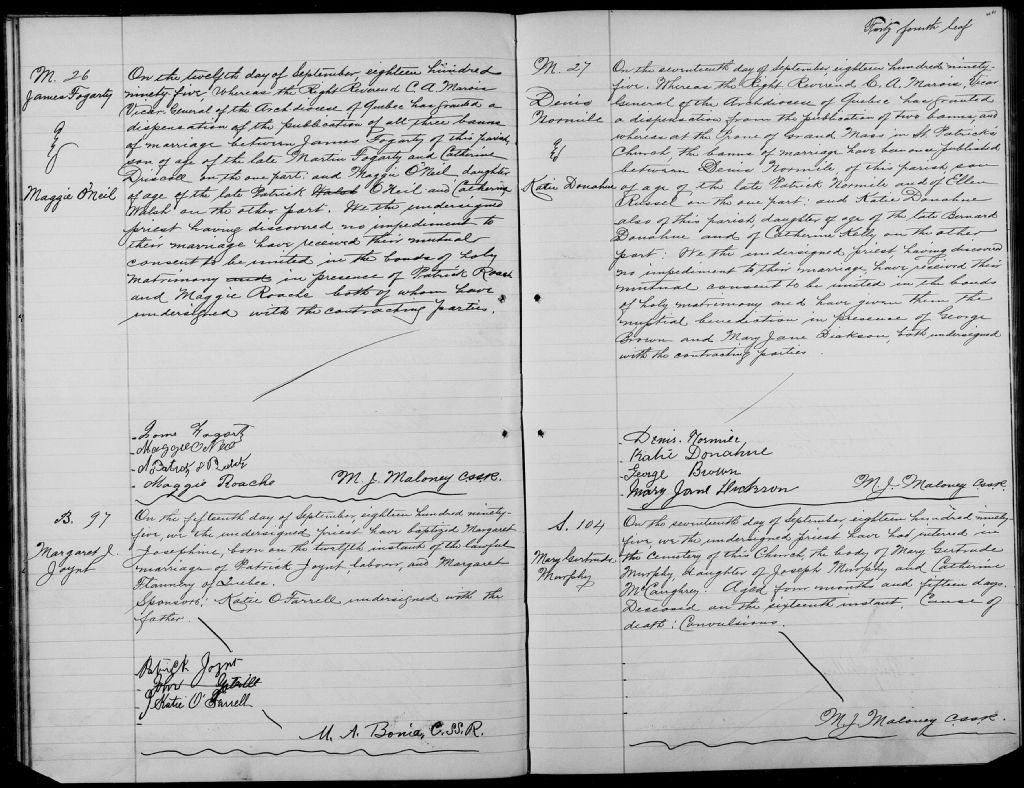 M. 26
James Fogarty
&
Maggie O'Neil
On the twelfth day of September, eighteen hundred
ninety-five Whereas the Right Reverend C. A. Marois
Vicar General of the Archdiocese of Quebec has granted a
dispensation of the publication of all three banns
of marriage between James Fogarty of this parish,
son of age of the late Martin Fogarty and Catherine
Driscoll on the one part: and Maggie O'Neil daughter
of age of the late Patrick Walsh O'Neil and Catherine
Walsh on the other part. We the undersigned
priest having discovered no impediment to
their marriage have received their mutual
consent to be united in the bonds of holy
matrimony and in presence of Patrick Roach
and Maggie Roache both of whom have
undersigned with the contracting parties.
Fogarty
Maggie O Neil
Patrick
Maggie Roache
M. J. Maloney CSSR.
B. 97
Margaret J.
Joynt
On the fifteenth day of September, eighteen hundred ninety-
five, we the undersigned priest have baptized Margaret
Josephine, born on the twelfth instant of the lawful
marriage of Patrick Joynt, labourer, and Margaret
Flannery of Quebec.
Sponsors: Katie O'Farrell undersigned with the
father.
Patrick Joynt
John
Katie O'Farrell
M. A. C.SS.R.
Forty fourth leaf
M. 27
Denis
Normile
&
Katie Donahue
On the seventeenth day of September, eighteen hundred ninety-
five: Whereas the Right Reverend C. A. Marois, Vicar
General of the Archdiocese of Quebec has granted
a dispensation from the publication of two banns, and
whereas at the Prone of Grand Mass in St. Patrick's
Church, the banns of marriage have been once published
between Denis Normile, of this parish, son
of age of the late Patrick Normile and of Ellen
Russel on the one part: and Katie Donahue
also of this parish, daughter of age of the late Bernard
Donahue and of Catherine Kelly on the other
part: We the undersigned priest having discovered
no impediment to their marriage, have received their
mutual consent to be united in the bonds
of holy matrimony and have given them the
nuptial benediction in presence of George
Brown and Mary Jane Dickson, both undersigned
with the contracting parties.
Denis. Normile
Katie Donahue
George Brown
Mary Jane Dickson
M. J. Maloney CSSR.
S. 104
Mary Gertrude
Murphy
On the seventeenth day of September eighteen hundred ninety-
five we the undersigned priest have had interred in
the cemetery of this Church, the body of Mary Gertrude
Murphy, daughter of Joseph Murphy and Catherine
McCaughrey. Aged four months and fifteen days.
Deceased on the sixteenth instant. Cause of
death: Convulsions.
M. J. Maloney CSSR.